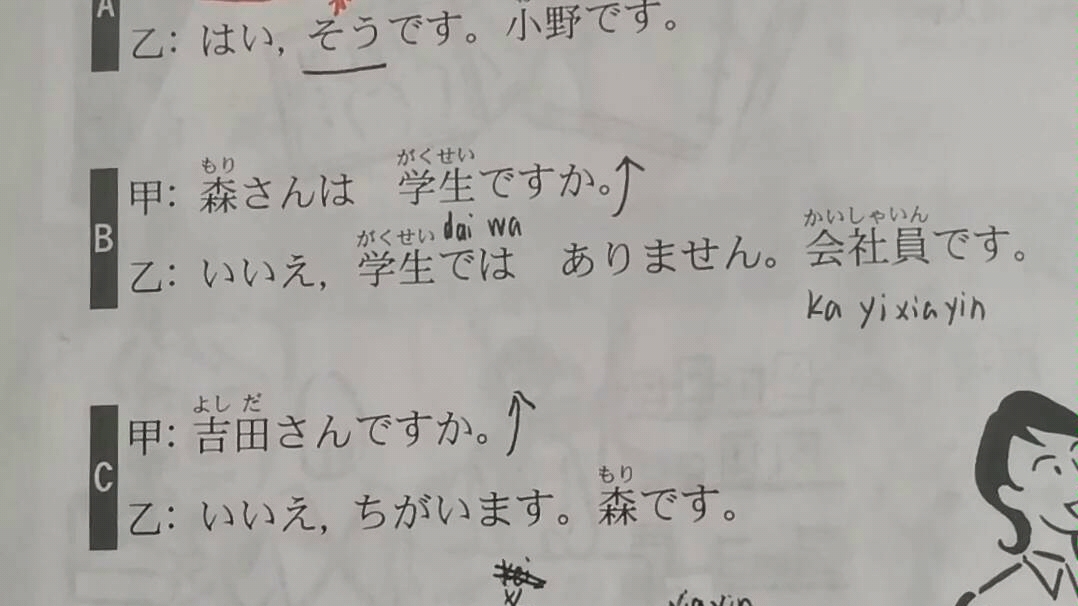 A
乙: はい, そうです。小野です。
もり がくせい
B
甲: 森さんは 学生ですか。↑
がくせい dai wa かいしゃいん
乙: いいえ, 学生では ありません。会社員です。
ka yi xia yin
よし だ
C
甲: 吉田さんですか。↑
もり
乙: いいえ, ちがいます。森です。